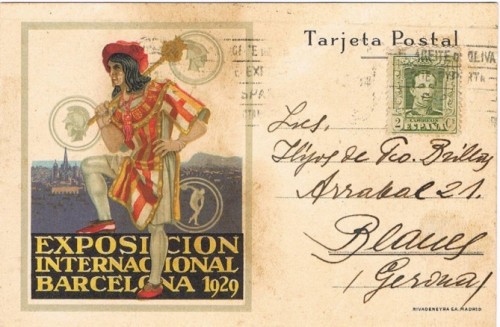 Tarjeta Postal
ACEITE D OLIVA
2 Cs
CORREOS
ESPAÑA
Sres.
Hijos de Fco. Brillas
Arrabal 21.
Blanes
(Gerona)
EXPOSICION
INTERNACIONAL
BARCELONA 1929
RIVADENEYRA S.A. MADRID